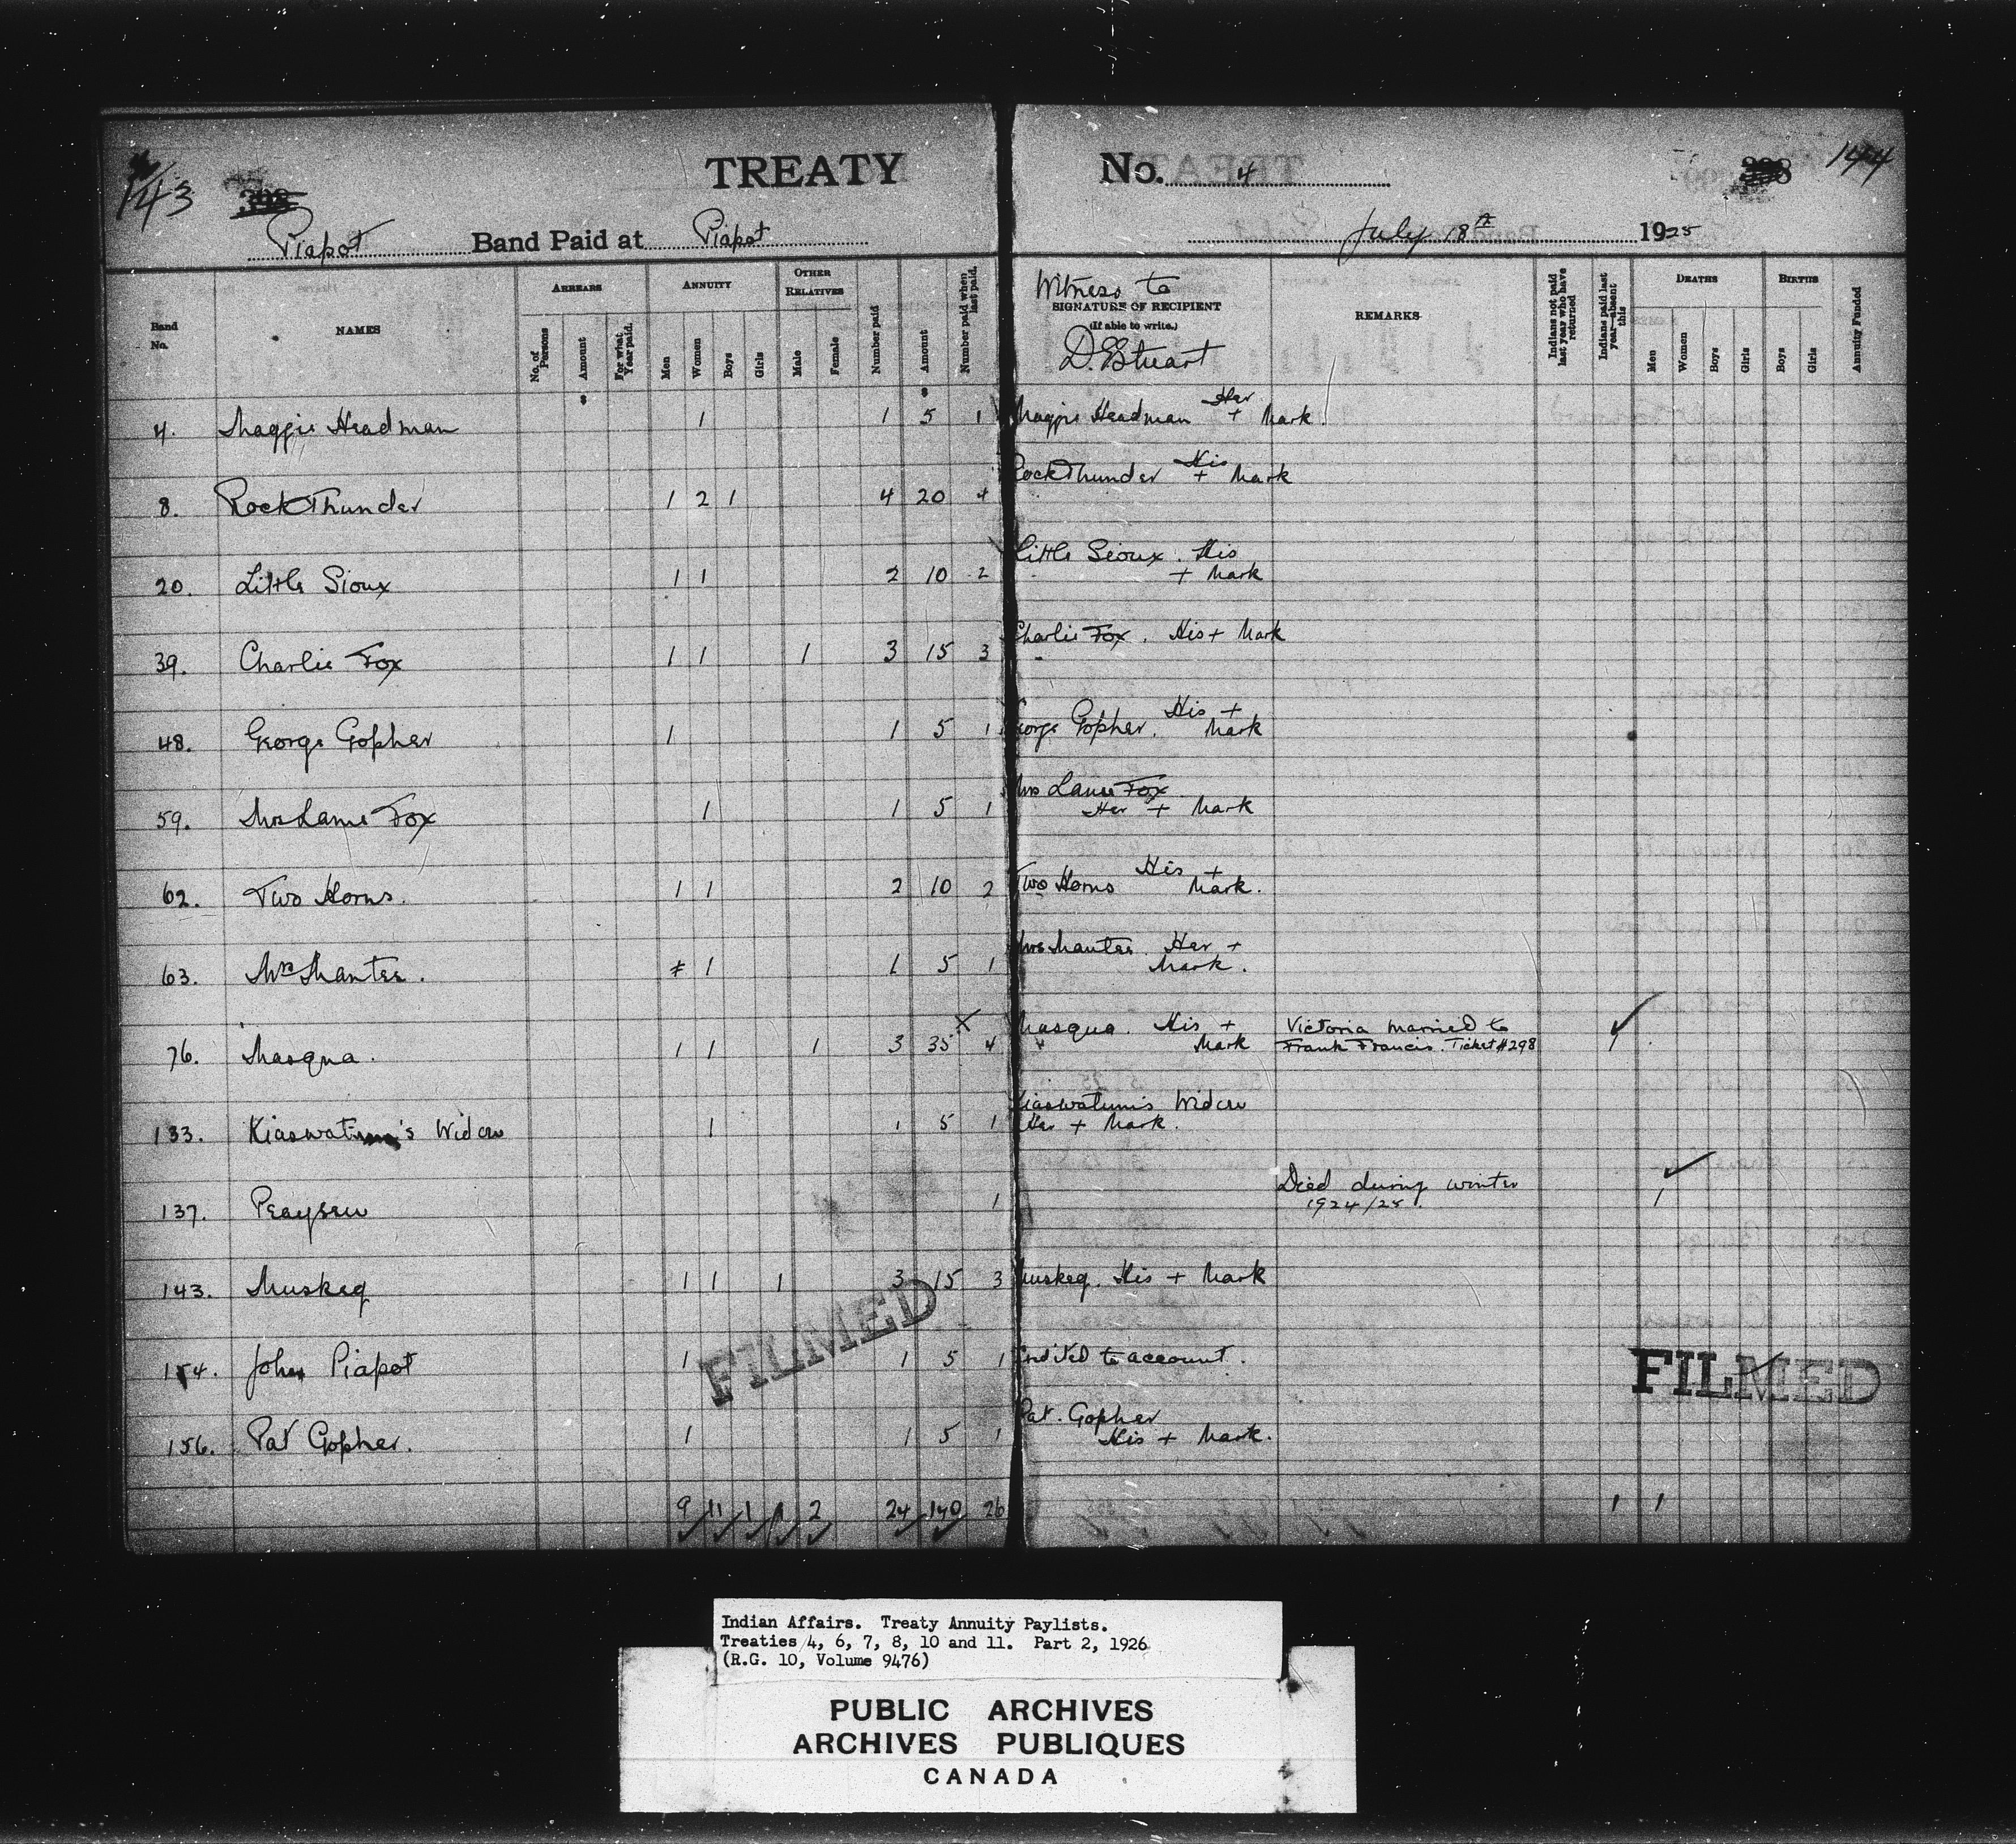 143 TREATY No. 4 144
Piapot Band Paid at Piapot July 18th 1925
Band No. NAMES ARREARS No. of Persons Amount For what Year paid. ANNUITY Men Women Boys Girls OTHER RELATIVES Male Female Number paid Amount Number paid when last paid. Witness to SIGNATURE OF RECIPIENT (If able to write.) D. Stuart REMARKS Indians not paid last year who have returned Indians paid last year—absent this DEATHS Men Women Boys Girls BIRTHS Boys Girls Annuity Funded
$ $
4. Maggie Headman 1 1 5 1 Maggie Headman Her + Mark.
8. Rock Thunder 1 2 1 4 20 4 Rock Thunder His + Mark
20. Little Sioux 1 1 2 10 2 Little Sioux. His + Mark
39. Charlie Fox 1 1 1 3 15 3 Charlie Fox. His + Mark
48. George Gopher 1 1 5 1 George Gopher. His + Mark
59. Mrs Lame Fox 1 1 5 1 Mrs Lame Fox Her + Mark
62. Two Horns. 1 1 2 10 2 Two Horns His + Mark.
63. Mrs Mantee. 1 1 5 1 Mrs Mantee Her + Mark.
76. Masqua. 1 1 1 3 35 X 4 Masqua. His + Mark Victoria married to Frank Francis. Ticket #298 1
133. Kiaswatum's Widow 1 1 5 1 Kiaswatum's Widow Her + Mark.
137. Peaysew 1 Died during winter 1924/25. 1
143. Muskeg 1 1 1 3 15 3 Muskeg. His + Mark
154. John Piapot 1 1 5 1 Credited to account.
156. Pat Gopher. 1 1 5 1 Pat. Gopher His + Mark.
9 11 1 1 2 24 140 26 1 1
FILMED
FILMED
Indian Affairs. Treaty Annuity Paylists.
Treaties 4, 6, 7, 8, 10 and 11. Part 2, 1926
(R.G. 10, Volume 9476)
PUBLIC ARCHIVES
ARCHIVES PUBLIQUES
CANADA